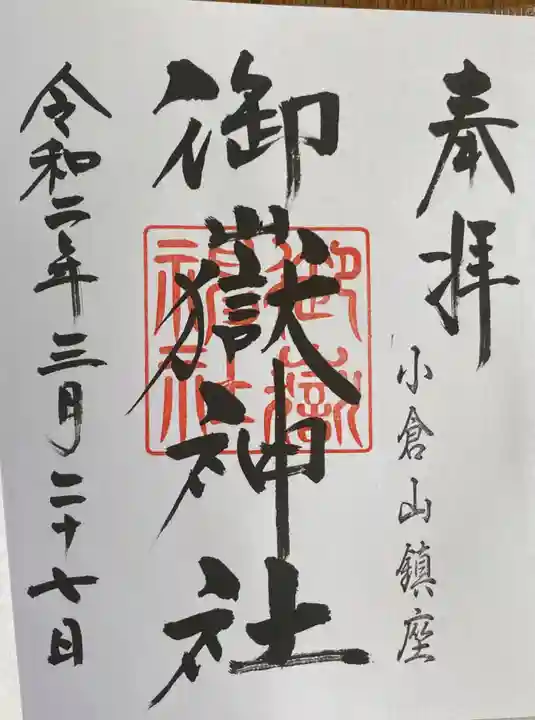 奉拝
小倉山鎮座
御嶽神社
御嶽
神社
令和二年三月二十七日